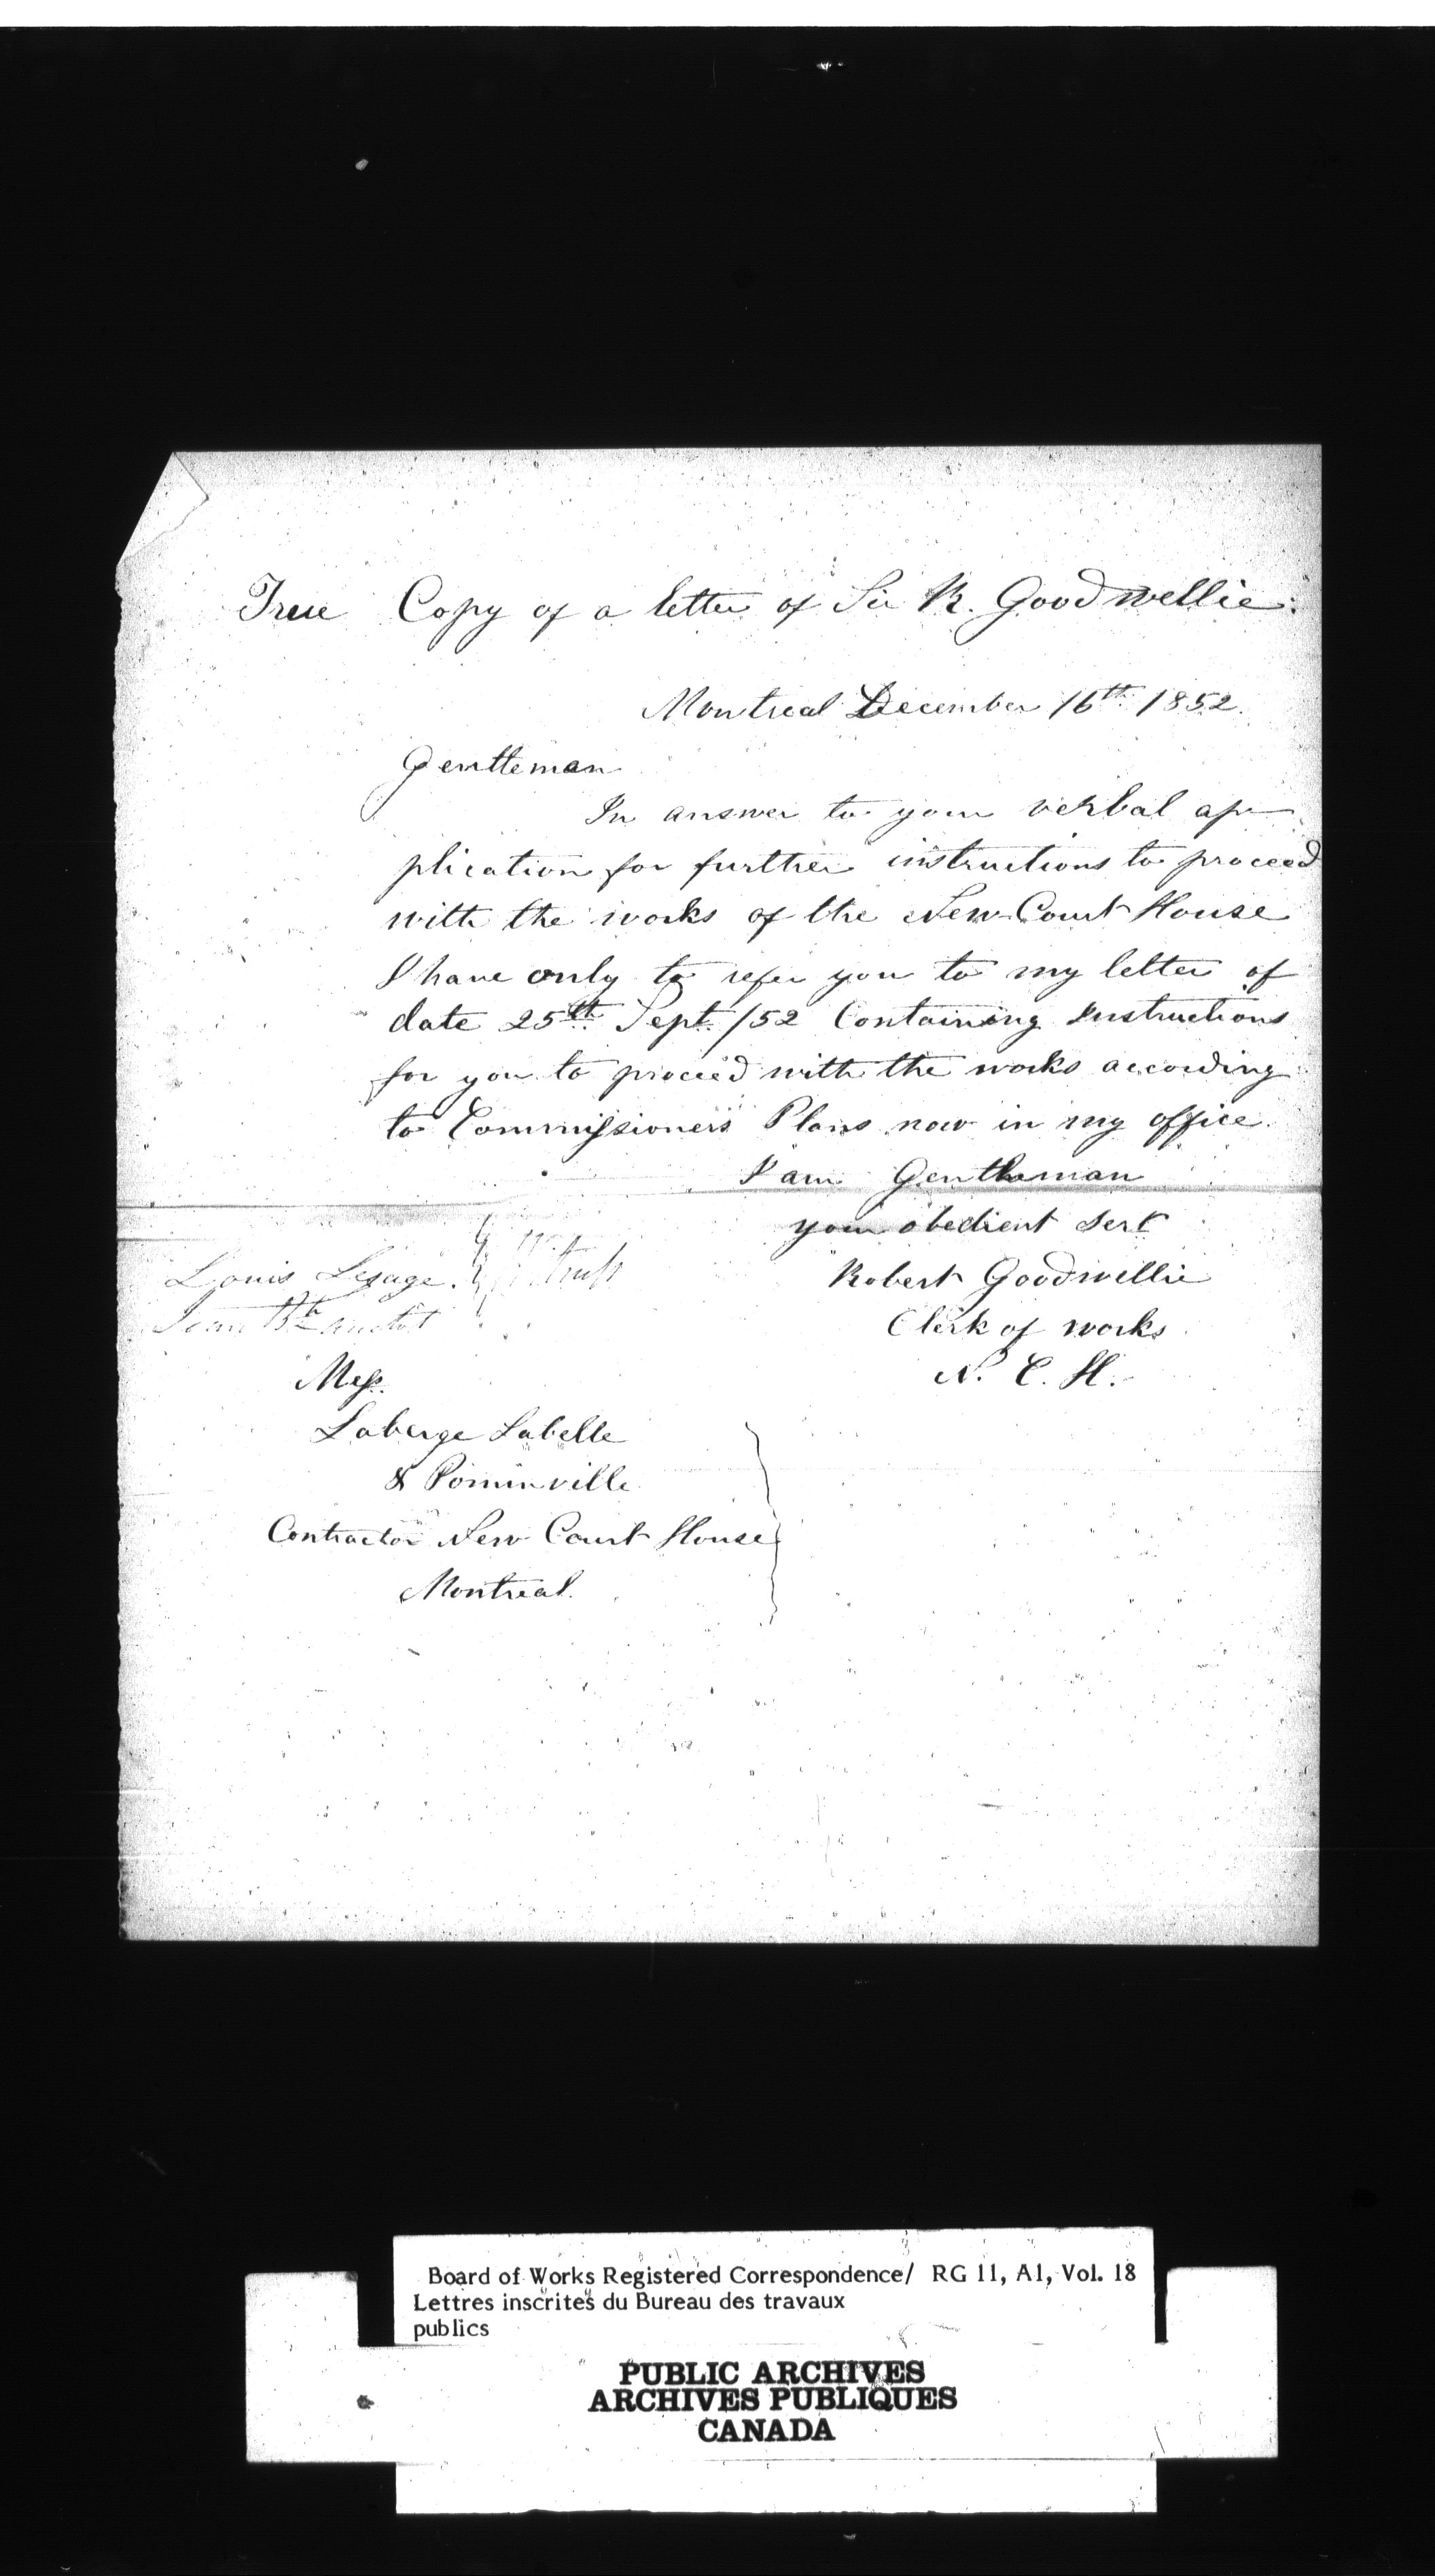 True Copy of a letter of Sir R. Goodwellie:
Montreal December 16th 1852.
Gentleman
In answer to your verbal ap-
plication for further instructions to proceed
with the works of the New Court House
I have only to refer you to my letter of
date 25th Sept. /52 Containing Instructions
for you to proceed with the works according
to Commissioners Plans now in my office.
I am Gentleman
your obedient Sert
Robert Goodwillie
Clerk of works
N. C. H.
Louis Lesage.
Jean Bte
Mess.
Laberge Labelle
& Pominville
Contractor New Court House
Montreal.
Board of Works Registered Correspondence/ RG 11, A1, Vol. 18
Lettres inscrites du Bureau des travaux
publics
PUBLIC ARCHIVES
ARCHIVES PUBLIQUES
CANADA